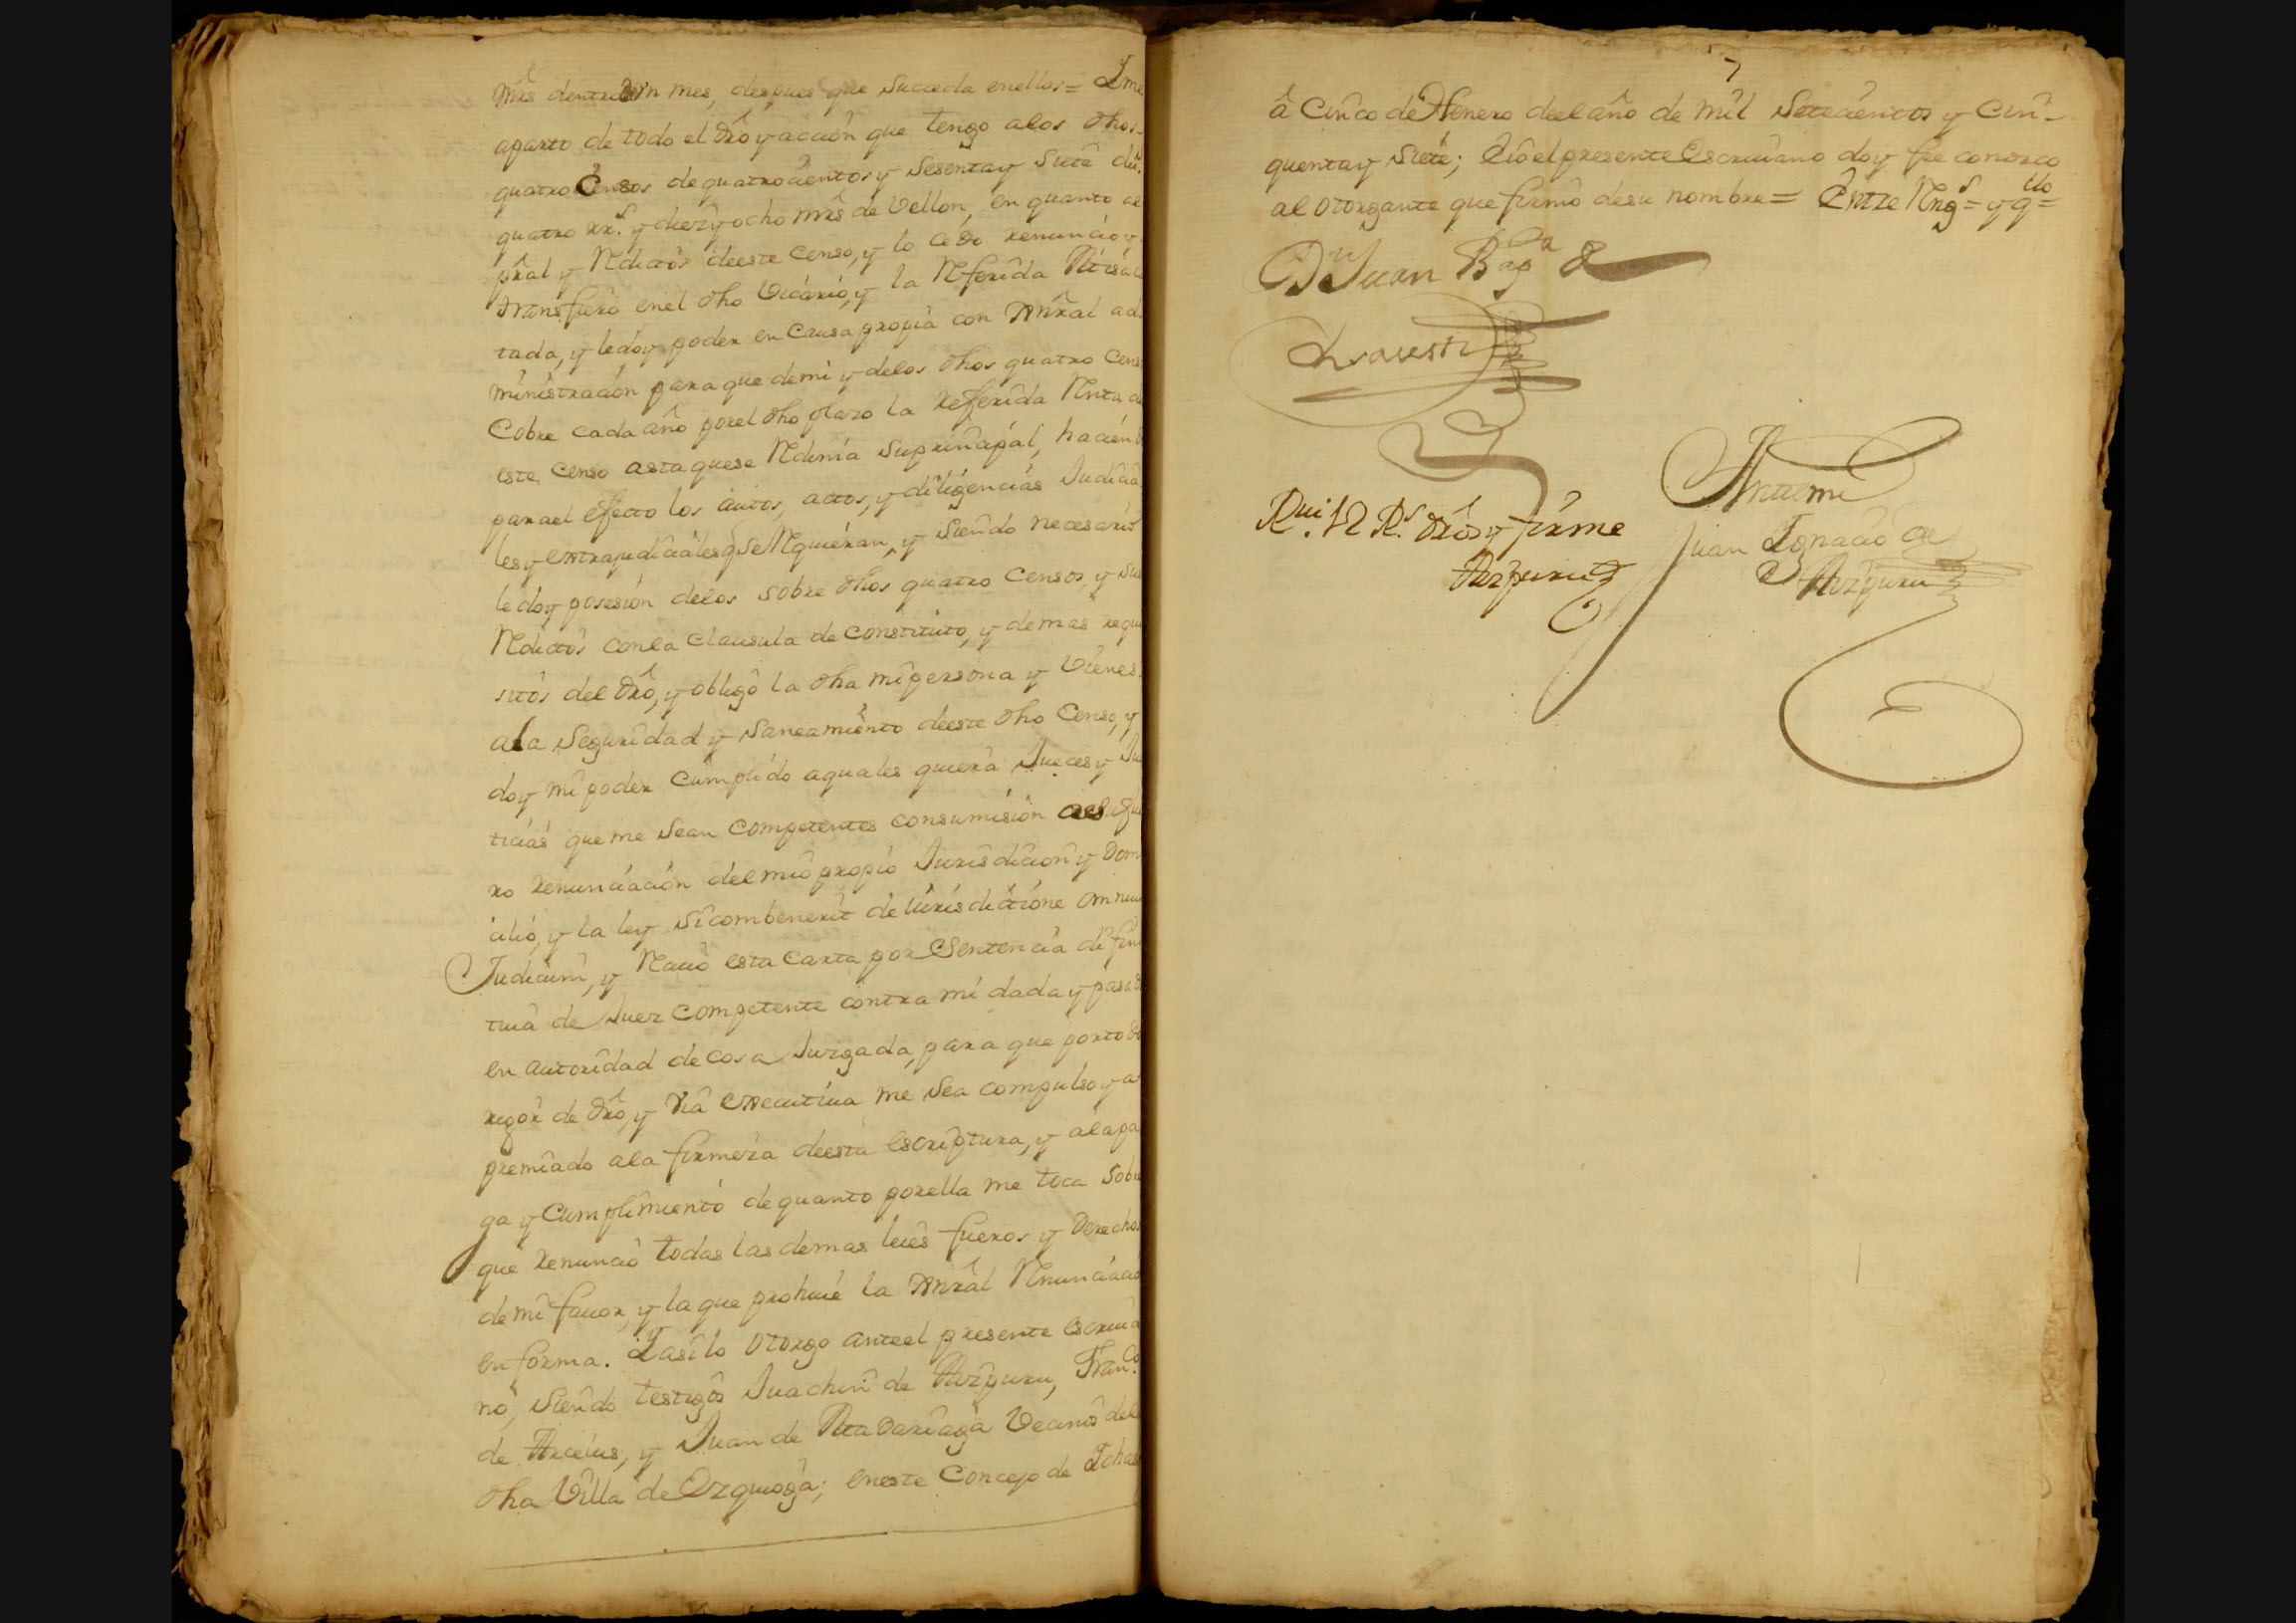 mrs dentro Un mes, despues que suceda enellos = Ime
aparto de todo el dro y accion que tengo alos dhos
quatro Censos de quatrocientos y Sesentay Siete du.
quatro rr.s y diez y ocho mrs de Vellon, en quanto al
pral y Reditos deeste Censo, y lo Cedo renuncio y
transfiero enel dho Vicario, y la Referida
tada, y ledoy poder en Causa propia con Genral ad
ministracion para que de mi y delos dhos quatro Cens
Cobre cada año porel dho plazo la Referida Renta de
este Censo asta quese Redima Suprincipal, haciend
parael efecto los autos, actos, y diligencias Judicia
les y extrajudiciales q Se Requieran, y Siendo necesario
le doy posesion delos sobre dhos quatro Censos, y sus
Reditos conla Clausula de Constituto, y demas requi
sitos del dro, y obligo la dha mi persona y Vienes
ala Seguridad y Saneamiento deeste dho Censo, y
doy mi poder Cumplido aquales quiera Jueces y Jus
ticias que me Sean Competentes consumision
ro Renunciacion del mio propio Jurisdicion y Dom
cilio, y la ley Sicombenerit de iurisdictione omnium
Judicum, y Reciuo esta Carta por Sentencia difini
tiua de Juez Competente contra mi dada y pasad
en autoridad de cosa Juzgada, para que portodo
rigor de dro, y Via executiua me Sea compulso y a
premiado ala firmeza deesta escriptura, y alapa
ga y Cumplimiento de quanto porella me toca Sobre
que Renuncio todas las demas leies fueros y Derechos
de mi fauor, y la que prohiue la Genral Renunciacio
en forma. Iasi lo Otorgo anteel presente escriua
no, Siendo testigos Juachin de Aizpuru, Fran.co
de Arcelus, y Juan de Madariaga Vecinos dela
dha Villa de Ezquioga; eneste Concejo de Ichaso
7
â Cinco de Henero deel año de mil Setecientos y Cin-
quentay Siete; Eio el presente Escriuano doy fee conozco
al otorgante que firmo desu nombre = Entre Rng.s = y q.llo =
Dn Juan Bapta de
Antemi
Rui. 12 R.s dros y firme
Juan Ignacio de
Aizpuru
Aizpuru